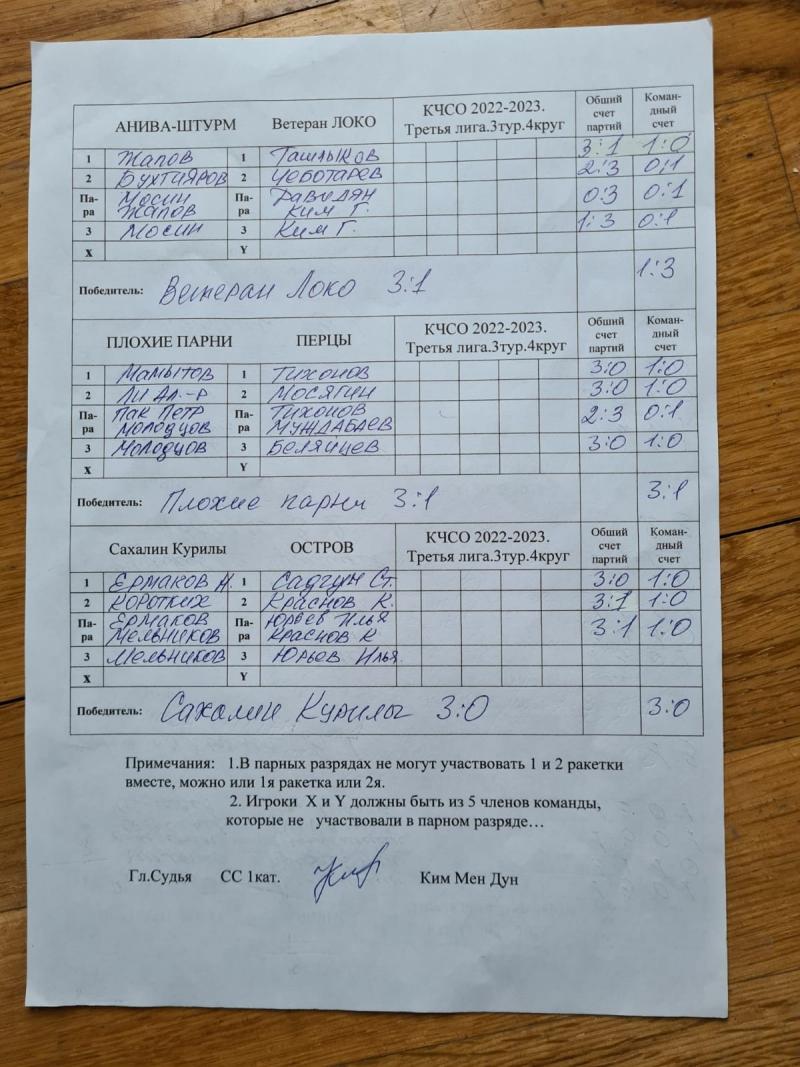 АНИВА-ШТУРМ Ветеран ЛОКО КЧСО 2022-2023. Третья лига.3тур.4круг Обший счет партий Коман-дный счет
1 Жапов 1 Ташлыков 3:1 1:0
2 Бухтияров 2 Чеботарев 2:3 0:1
Па-ра Мосин Жапов Па-ра Давидян Ким Г. 0:3 0:1
3 Мосин 3 Ким Г. 1:3 0:1
X Y
Победитель: Ветеран Локо 3:1 1:3
ПЛОХИЕ ПАРНИ ПЕРЦЫ КЧСО 2022-2023. Третья лига.3тур.4круг Обший счет партий Коман-дный счет
1 Мамытов 1 Тихонов 3:0 1:0
2 Ли Ал.-р 2 Мосягин 3:0 1:0
Па-ра Пак Петр Молодцов Па-ра Тихонов Муждабаев 2:3 0:1
3 Молодцов 3 Белянцев 3:0 1:0
X Y
Победитель: Плохие парни 3:1 3:1
Сахалин Курилы ОСТРОВ КЧСО 2022-2023. Третья лига.3тур.4круг Обший счет партий Коман-дный счет
1 Ермаков 1 Садгун Ст. 3:0 1:0
2 Коротких 2 Краснов К. 3:1 1:0
Па-ра Ермаков Мельников Па-ра Юрьев Илья Краснов К 3:1 1:0
3 Мельников 3 Юрьев Илья
X Y
Победитель: Сахалин Курилы 3:0 3:0
Примечания: 1.В парных разрядах не могут участвовать 1 и 2 ракетки
вместе, можно или 1я ракетка или 2я.
2. Игроки X и Y должны быть из 5 членов команды,
которые не участвовали в парном разряде…
Гл.Судья СС 1кат. Ким Мен Дун